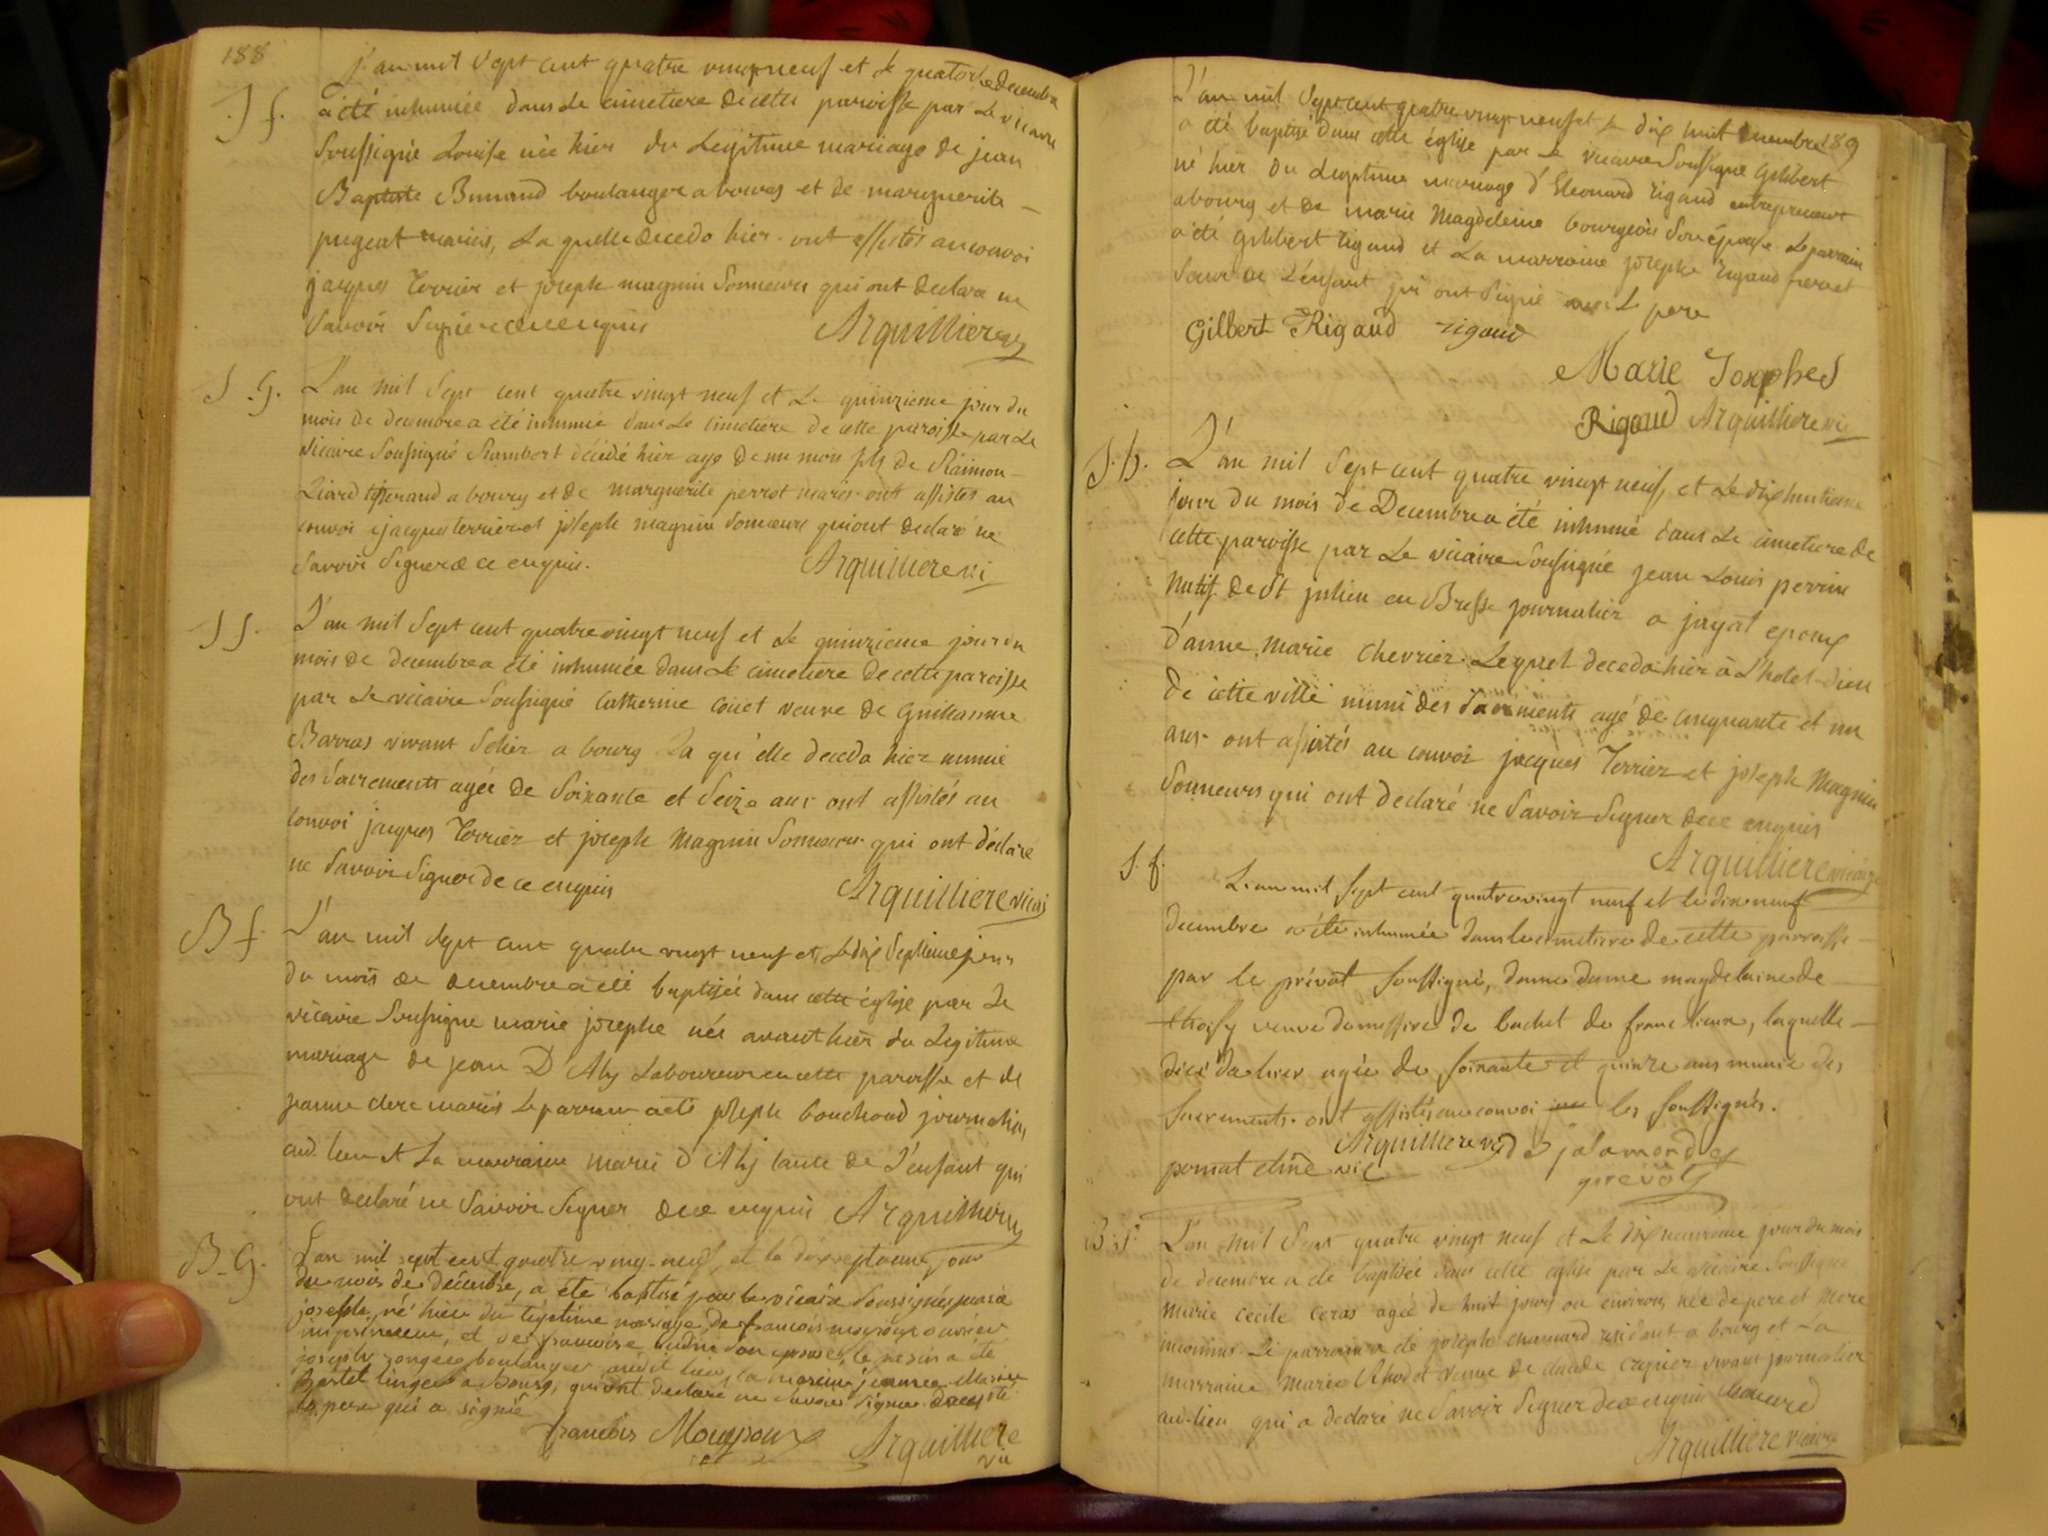 188
S f. L'an mil sept cent quatre vingt neuf et le quatorze decembre
a été inhumée dans le cimetiere de cette paroisse par le vicaire
soussigné Louise née hier du Legitime mariage de jean
Baptiste Bunand boulanger a bourg et de marguerite
pugeat mariés, La quelle deceda hier. ont assistés au convoi
jacques Terrier et joseph magnin Sonneurs qui ont declaré ne
savoir Signer de ce enquis
Arquilliere vi
S. G. L'an mil Sept cent quatre vingt neuf et Le quinzieme jour du
mois de decembre a été inhumé dans Le cimetiere de cette paroisse par Le
vicaire soussigné Rambert décédé hier agé de un mois fils de
Liard tisserand a bourg et de marguerite perrot mariés. ont assistés au
convoi jacques terrier et joseph magnin Sonneurs qui ont declaré ne
savoir Signer de ce enquis.
Arquilliere vi
S f. L'an mil Sept cent quatre vingt neuf et Le quinzieme jour du
mois de decembre a été inhumée dans Le cimetiere de cette paroisse
par Le vicaire soussigné catherine couet veuve de Guillaume
Barras vivant Sellier a bourg La qu'elle deceda hier munie
des Sacrements agée de Soixante et Seize ans ont assistés au
convoi jacques Terrier et joseph Magnin Sonneurs qui ont déclaré
ne Savoir Signer de ce enquis
Arquilliere vicai
B f. L'an mil Sept cent quatre vingt neuf et Le dix Septieme jour
du mois de decembre a été baptisée dans cette église par Le
vicaire Soussigné marie josephe née avant hier du Legitime
mariage de jean D'Aly Laboureur en cette paroisse et de
jeanne clerc mariés Le parrain a été joseph bouchoud journalier
aud. lieu et La marraine marie D'Aly tante de L'enfant qui
ont declaré ne Savoir Signer de ce enquis Arquilliere vi
B. G. L'an mil sept cent quatre ving-neuf, et le dixseptieme jour
du mois de decembre, a été baptisé par le vicaire soussigné
joseph, né hier du légitime mariage de francois ouvrier
imprimeur, et de francoise son epouse, le parain a été
joseph boulanger audit lieu, la maraine jeanne Marie
lingere a Bourg, qui ont declaré ne savoir signer
le pere qui a signé
francois Arquilliere
vic
189
L'an mil Sept cent quatre vingt neuf et le dix huit decembre
a été baptisé dans cette église par Le vicaire Soussigné Gilibert
né hier du Legitime mariage d'Eléonard rigaud entrepreneur
a bourg et de marie Magdeleine bourgeois Son épouse Le parrain
a été Gilibert rigaud et La marraine josephe rigaud frere et
Soeur de L'enfant qui ont Signé avec Le pere
Gilbert Rigaud rigaud
Marie Josephe
Rigaud Arquilliere vic
S. G. L'an mil Sept cent quatre vingt neuf, et Le dix huitieme
jour du mois de Decembre a été inhumé dans Le cimetiere de
cette paroisse par Le vicaire Soussigné jean Louis perrin
natif de St julien en Bresse journalier a jayat epoux
d'anne Marie Chevrier Lequel deceda hier à L'hotel-dieu
de cette ville muni des Sacrements agé de cinquante et un
ans. ont assistés au convoi jacques Terrier et joseph Magnin
Sonneurs qui ont declaré ne Savoir Signer de ce enquis
Arquilliere vicaire
S. f. L'an mil Sept cent quatre vingt neuf et le dix neuf
decembre a été inhumée dans le cimetiere de cette parroisse
par le prévôt soussigné, dame dame magdelaine de
choisy veuve de messire de bachet de franclieux, laquelle
décéda hier agée de soixante et quinze ans munie des
sacrements. ont assistés au convoi les soussignés.
Arquilliere vic
vic prévôt
B. f. L'an mil Sept quatre vingt neuf et Le dix neuvieme jour du mois
de decembre a été baptisée dans cette eglise par Le vicaire Soussigné
Marie Cecile Ceras agée de huit jours ou environ, née de pere et mere
inconnus. Le parrain a été joseph résidant a bourg et La
marraine Marie Rhodet veuve de claude vivant journalier
au-lieu qui a declaré ne Savoir Signer de ce enquis
Arquilliere vicaire